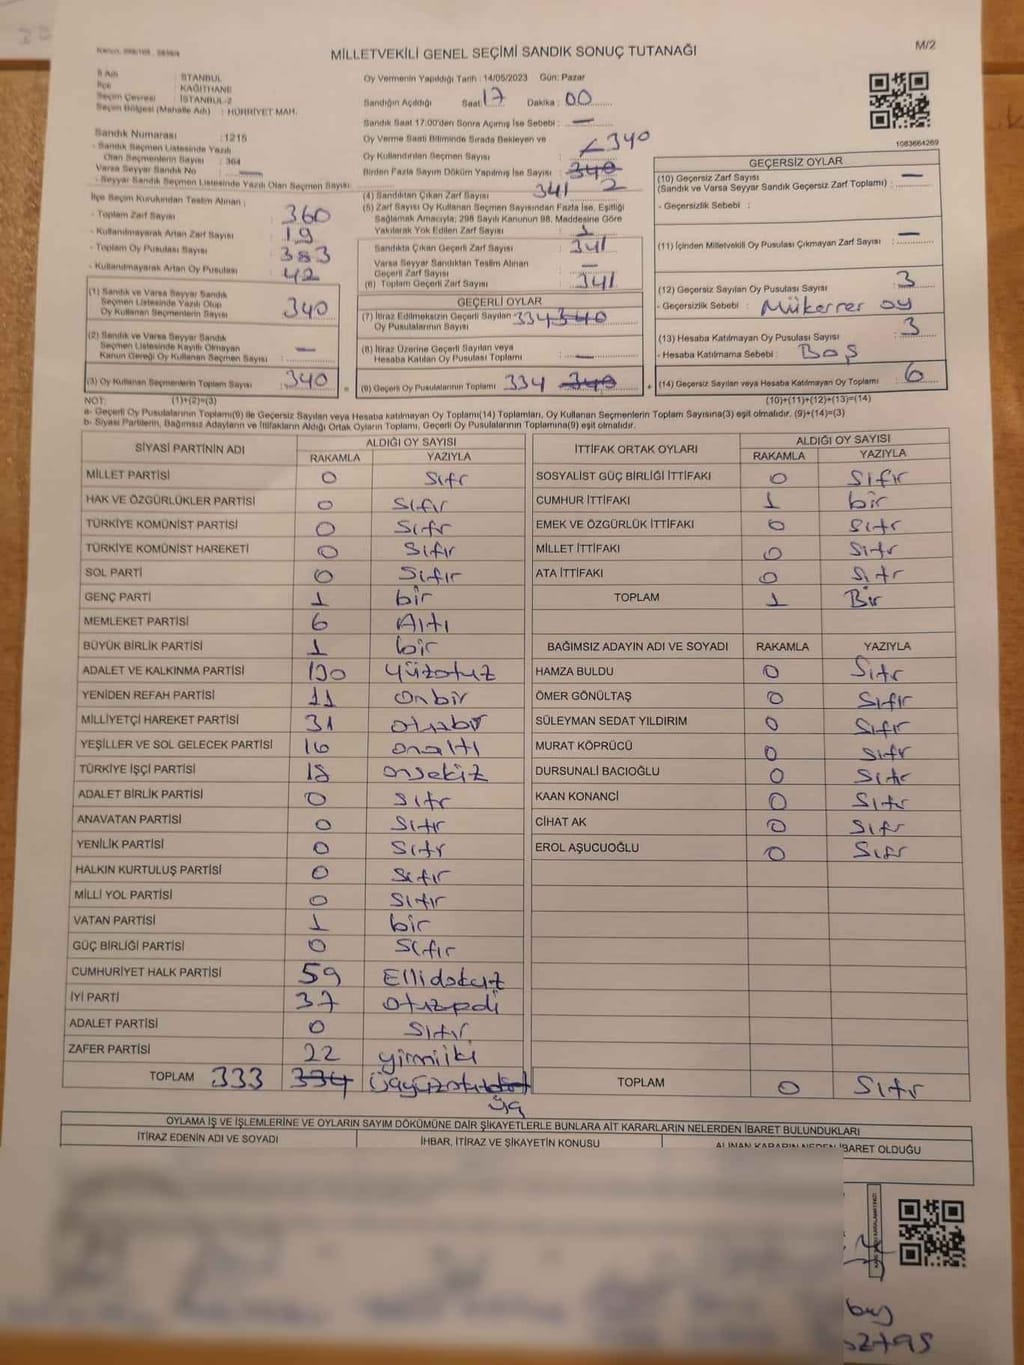 M/2
MİLLETVEKİLİ GENEL SEÇİMİ SANDIK SONUÇ TUTANAĞI
İl Adı : İSTANBUL
İlçe : KAĞITHANE
Seçim Çevresi : İSTANBUL-2
Seçim Bölgesi (Mahalle Adı) : HÜRRİYET MAH.
Sandık Numarası : 1216
- Sandık Seçmen Listesinde Yazılı
Olan Seçmenlerin Sayısı : 364
Varsa Seyyar Sandık No
- Seyyar Sandık Seçmen Listesinde Yazılı Olan Seçmen Sayısı
İlçe Seçim Kurulundan Teslim Alınan ;
- Toplam Zarf Sayısı 360
- Kullanılmayarak Artan Zarf Sayısı 19
- Toplam Oy Pusulası Sayısı 383
- Kullanılmayarak Artan Oy Pusulası 42
(1) Sandık ve Varsa Seyyar Sandık
Seçmen Listesinde Yazılı Olup
Oy Kullanan Seçmenlerin Sayısı 340
(2) Sandık ve Varsa Seyyar Sandık
Seçmen Listesinde Kayıtlı Olmayan
Kanun Gereği Oy Kullanan Seçmen Sayısı : —
(3) Oy Kullanan Seçmenlerin Toplam Sayısı 340
Oy Vermenin Yapıldığı Tarih : 14/05/2023 Gün: Pazar
Sandığın Açıldığı Saat 17 Dakika : 00
Sandık Saat 17.00'den Sonra Açımış İse Sebebi : —
Oy Verme Saati Bitiminde Sırada Bekleyen ve
Oy Kullandırılan Seçmen Sayısı 340
Birden Fazla Sayım Döküm Yapılmış İse Sayısı 340 2
(4) Sandıktan Çıkan Zarf Sayısı 341
(5) Zarf Sayısı Oy Kullanan Seçmen Sayısından Fazla İse, Eşitliği
Sağlamak Amacıyla; 298 Sayılı Kanunun 98. Maddesine Göre
Yakılarak Yok Edilen Zarf Sayısı 1
Sandıkta Çıkan Geçerli Zarf Sayısı 341
Varsa Seyyar Sandıktan Teslim Alınan
Geçerli Zarf Sayısı —
(6) Toplam Geçerli Zarf Sayısı 341
GEÇERLİ OYLAR
(7) İtiraz Edilmeksizin Geçerli Sayılan 334 340
Oy Pusulalarının Sayısı
(8) İtiraz Üzerine Geçerli Sayılan veya
Hesaba Katılan Oy Pusulası Toplamı —
= (9) Geçerli Oy Pusulalarının Toplamı 334 340 +
1083664269
GEÇERSİZ OYLAR
(10) Geçersiz Zarf Sayısı
(Sandık ve Varsa Seyyar Sandık Geçersiz Zarf Toplamı) : —
- Geçersizlik Sebebi :
(11) İçinden Milletvekili Oy Pusulası Çıkmayan Zarf Sayısı —
(12) Geçersiz Sayılan Oy Pusulası Sayısı 3
- Geçersizlik Sebebi : Mükerrer oy
(13) Hesaba Katılmayan Oy Pusulası Sayısı 3
- Hesaba Katılmama Sebebi : Boş
(14) Geçersiz Sayılan veya Hesaba Katılmayan Oy Toplamı 6
NOT: (1)+(2)=(3) (10)+(11)+(12)+(13)=(14)
a- Geçerli Oy Pusulalarının Toplamı(9) ile Geçersiz Sayılan veya Hesaba katılmayan Oy Toplamı(14) Toplamları, Oy Kullanan Seçmenlerin Toplam Sayısına(3) eşit olmalıdır. (9)+(14)=(3)
b- Siyasi Partilerin, Bağımsız Adayların ve İttifakların Aldığı Ortak Oyların Toplamı, Geçerli Oy Pusulalarının Toplamına(9) eşit olmalıdır.
SİYASİ PARTİNİN ADI ALDIĞI OY SAYISI
RAKAMLA YAZIYLA
MİLLET PARTİSİ 0 Sıfır
HAK VE ÖZGÜRLÜKLER PARTİSİ 0 Sıfır
TÜRKİYE KOMÜNİST PARTİSİ 0 Sıfır
TÜRKİYE KOMÜNİST HAREKETİ 0 Sıfır
SOL PARTİ 0 Sıfır
GENÇ PARTİ 1 bir
MEMLEKET PARTİSİ 6 Altı
BÜYÜK BİRLİK PARTİSİ 1 bir
ADALET VE KALKINMA PARTİSİ 130 Yüzotuz
YENİDEN REFAH PARTİSİ 11 onbir
MİLLİYETÇİ HAREKET PARTİSİ 31 otuzbir
YEŞİLLER VE SOL GELECEK PARTİSİ 16 onaltı
TÜRKİYE İŞÇİ PARTİSİ 18 onsekiz
ADALET BİRLİK PARTİSİ 0 Sıfır
ANAVATAN PARTİSİ 0 Sıfır
YENİLİK PARTİSİ 0 Sıfır
HALKIN KURTULUŞ PARTİSİ 0 Sıfır
MİLLİ YOL PARTİSİ 0 Sıfır
VATAN PARTİSİ 1 bir
GÜÇ BİRLİĞİ PARTİSİ 0 Sıfır
CUMHURİYET HALK PARTİSİ 59 Ellidokuz
İYİ PARTİ 37 otuzyedi
ADALET PARTİSİ 0 Sıfır
ZAFER PARTİSİ 22 yirmiiki
TOPLAM 333 334 üçyüzotuzdört
üç
İTTİFAK ORTAK OYLARI ALDIĞI OY SAYISI
RAKAMLA YAZIYLA
SOSYALİST GÜÇ BİRLİĞİ İTTİFAKI 0 Sıfır
CUMHUR İTTİFAKI 1 bir
EMEK VE ÖZGÜRLÜK İTTİFAKI 0 Sıfır
MİLLET İTTİFAKI 0 Sıfır
ATA İTTİFAKI 0 Sıfır
TOPLAM 1 Bir
BAĞIMSIZ ADAYIN ADI VE SOYADI RAKAMLA YAZIYLA
HAMZA BULDU 0 Sıfır
ÖMER GÖNÜLTAŞ 0 Sıfır
SÜLEYMAN SEDAT YILDIRIM 0 Sıfır
MURAT KÖPRÜCÜ 0 Sıfır
DURSUNALİ BACIOĞLU 0 Sıfır
KAAN KONANCİ 0 Sıfır
CİHAT AK 0 Sıfır
EROL AŞUCUOĞLU 0 Sıfır
TOPLAM 0 Sıfır
OYLAMA İŞ VE İŞLEMLERİNE VE OYLARIN SAYIM DÖKÜMÜNE DAİR ŞİKAYETLERLE BUNLARA AİT KARARLARIN NELERDEN İBARET BULUNDUKLARI
İTİRAZ EDENİN ADI VE SOYADI İHBAR, İTİRAZ VE ŞİKAYETİN KONUSU ALINAN KARARIN NEDEN İBARET OLDUĞU